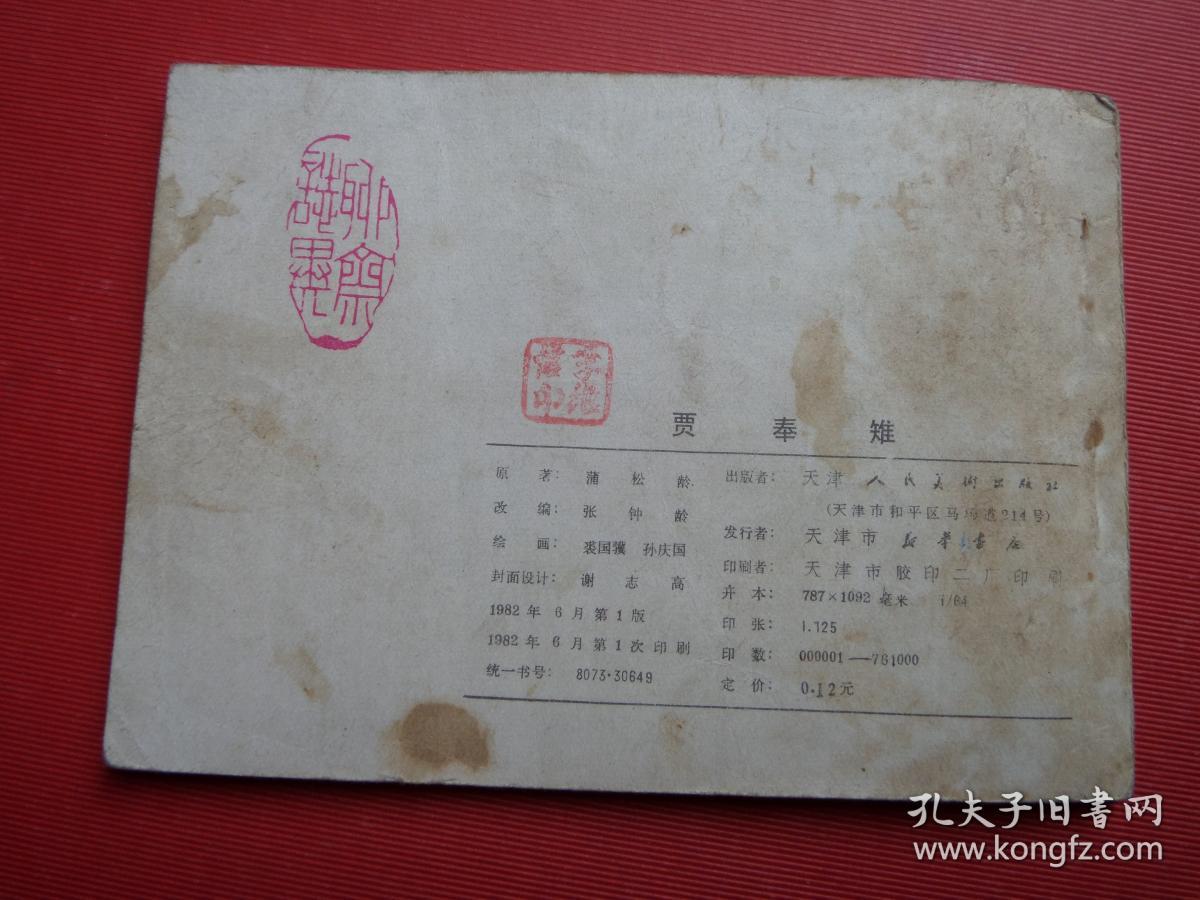 聊斋
誌異
贾奉雉
原著：蒲松龄
改编：张钟龄
绘画：裘国骥 孙庆国
封面设计：谢志高
1982年6月第1版
1982年6月第1次印刷
统一书号：8073·30649
出版者：天津人民美術出版社
(天津市和平区马场道214号)
发行者：天津市新华書店
印刷者：天津市胶印二厂印刷
开本：787×1092毫米 1/64
印张：1.125
印数：000001—761000
定价：0.12元
孔夫子旧书网
www.kongfz.com